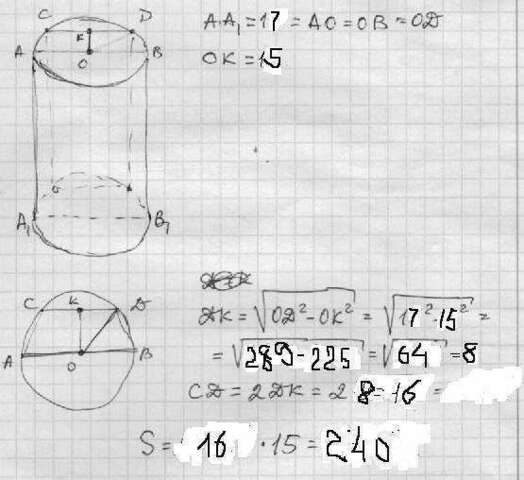 C D
K
A O B
A₁ B₁
AA₁ = 17 = AO = OB = OD
OK = 15
C K D
A O B
DK = √OD² - OK² = √17²-15² =
= √289 - 225 = √64 = 8
CD = 2DK = 2 8 = 16 =
S = 16 · 15 = 240